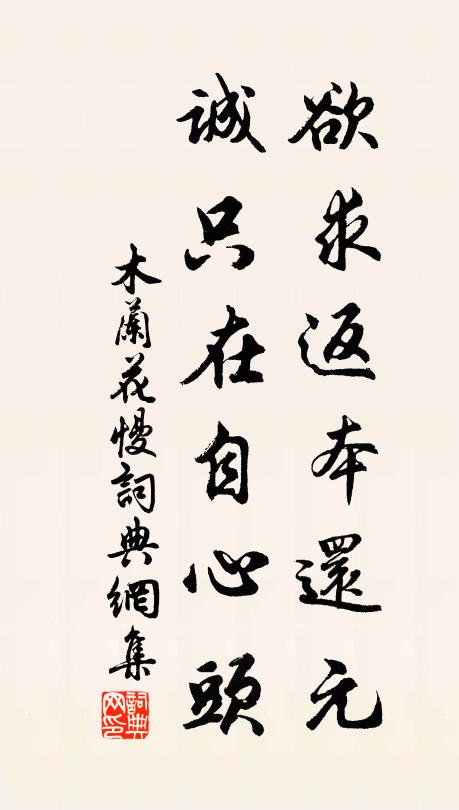 欲求返本還元
誠只在自心頭
木蘭花慢詞典網集
詞典网印